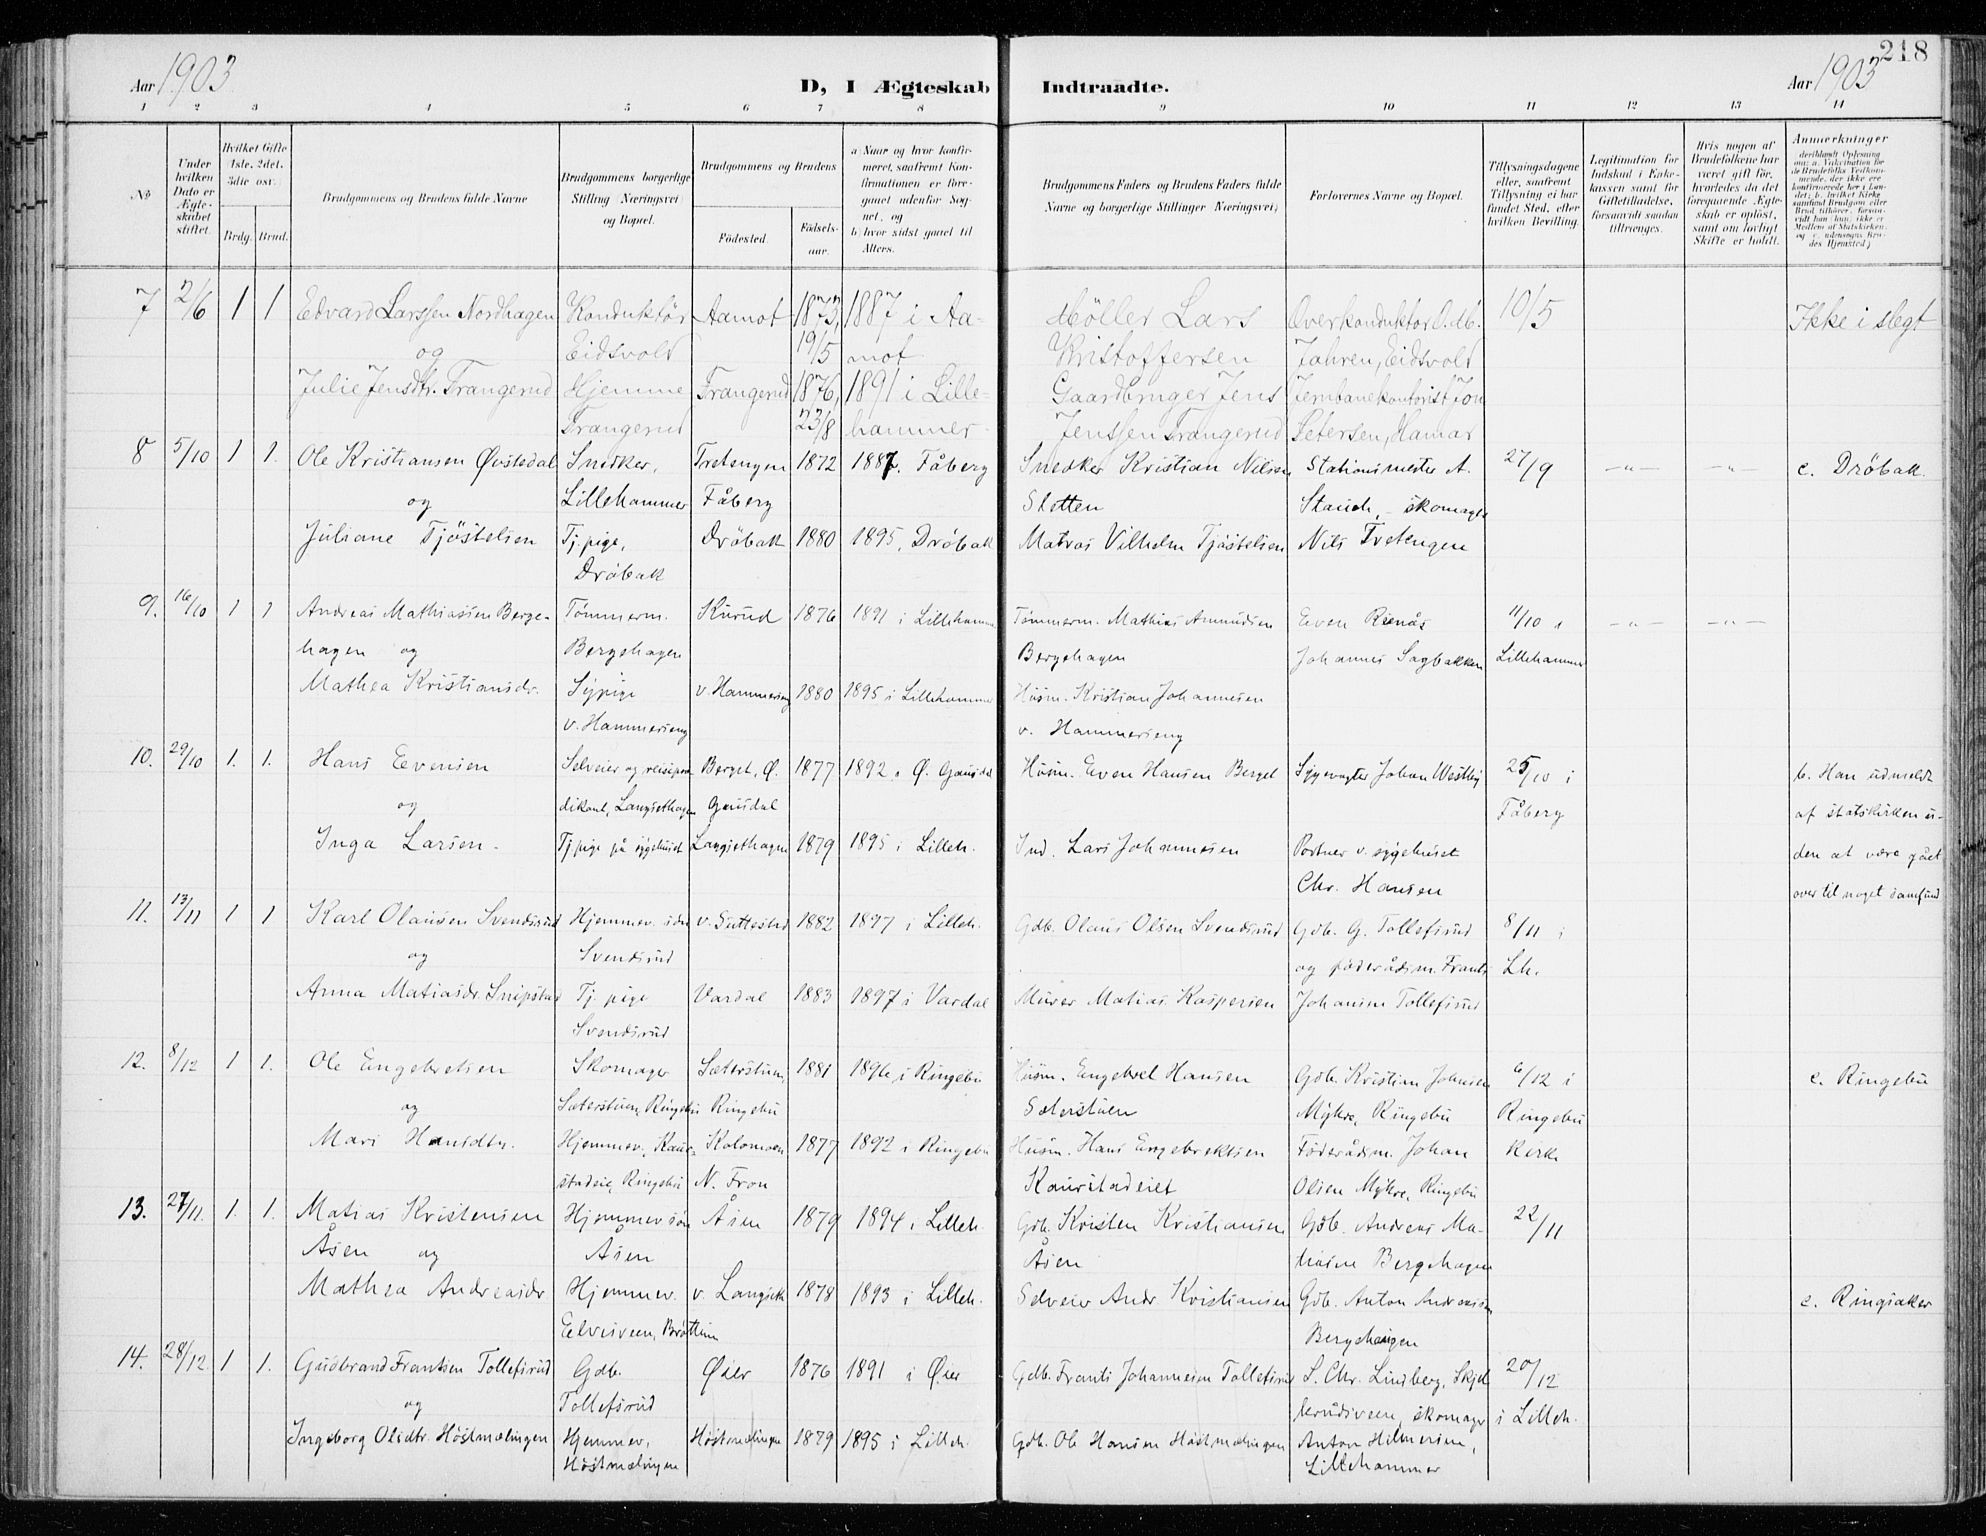 218
Aar 1903
D, I Ægteskab Indtraadte.
Aar 1903
1 2 3 4 5 6 7 8 9 10 11 12 13 14
No
Under hvilken Dato er Ægteskabet stiftet.
Hvilket Gifte 1ste, 2det, 3die osv.
Brdg. Brud.
Brudgommens og Brudens fulde Navne
Brudgommens borgerlige Stilling Næringsvei og Bopæl.
Brudgommens og Brudens
Fødested.
Fødsels-aar.
a Naar og hvor konfirmeret, saafremt Konfirmationen er foregaaet udenfor Sognet, og
b hvor sidst gaaet til Alters.
Brudgommens Faders og Brudens Faders fulde Navne og borgerlige Stillinger Næringsvei)
Forlovernes Navne og Bopæl.
Tillysningsdagene eller, saafremt Tillysning ei har fundet Sted, efter hvilken Bevilling.
Legitimation for Indskud i Enkekassen samt for Giftetilladelse, forsaavidt saadan tiltrænges.
Hvis nogen af Brudefolkene har været gift før, hvorledes da det foregaaende Ægteskab er opløst, samt om lovligt Skifte er holdt.
Anmerkninger
7 2/6 1 1 Edvard Larssen Nordhagen Konduktör Aamot 1873, 1887 i Aa- Möller Lars Overkonduktör O. M. 10/5 Ikke i slegt
og Eidsvold 19/5 mot Kristoffersen Jahren, Eidsvold
Julie Jensdtr. Frangerud Hjemme Frangerud 1876, 1891 i Lille- Gaardbruger Jens Jernbanekontorist Jon
Frangerud 23/8 hammer Jenssen Frangerud Petersen, Hamar
8 5/10 1 1. Ole Kristiansen Øvstedal Snedker, Tretengen 1872 1887. Fåberg Snedker Kristian Nilsen Stationsmester A. 27/9 —"— —"— c. Dröbak.
og Lillehammer Fåberg Sletten skomager
Juliane Tjöstelsen Tj. pige, Dröbak 1880 1895, Dröbak Matros Vilhelm Tjöstelsen Nils Tretengen
Dröbak
9. 16/10 1 1 Andreas Mathiassen Berge- Tømmerm. Kurud 1876 1891 i Lillehammer Tømmerm. Mathias Amundsen Even 11/10 i —"— —"—
hagen og Bergehagen Bergehagen Johannes Sagbakken Lillehammer
Mathea Kristiansdr. Sypige v. Hammerseng 1880 1895 i Lillehammer Husm. Kristian Johannesen
v. Hammerseng v. Hammerseng
10. 29/10 1. 1. Hans Evensen Selveier og reisepræ- Berget, Ø. 1877 1892 i Ø. Gausdal Husm. Even Hansen Berget Sygevogter Johan Westby 25/10 i b. Han udmeldt
og dikant, Langsethagen Gausdal Fåberg af statskirken u-
Inga Larsen. Tj. pige på sygehuset Langsethagen 1879 1895 i Lilleh. Ind. Lars Johannesen Portner v. sygehuset den at være gået
Chr. Hansen over til noget samfund
11. 13/11 1 1 Karl Olausen Svendsrud Hjemmev. sön v. Suttestad 1882 1897 i Lilleh. Gdb. Olaus Olsen Svendsrud Gdb. G. Tollefsrud 8/11 i
og Svendsrud og föderådsm. Frants Lh.
Anna Matiasdr. Snipstad Tj. pige Vardal 1883 1897 i Vardal Murer Matias Kaspersen Johansen Tollefsrud
Svendsrud
12. 8/12 1 1. Ole Engebretsen Skomager Sæterstuen, 1881 1896 i Ringebu Husm. Engebret Hansen Gdb. Kristian Johnsen 6/12 i c. Ringebu
og Sæterstuen, Ringebu Ringebu Sæterstuen Mykre, Ringebu Ringebu
Mari Hansdtr. Hjemmev., Kaur- Kolomoen 1877 1892 i Ringebu Husm. Hans Engebrektsen Föderådsm. Johan Kirke
stadeie, Ringebu N. Fron Kaurstadeiet Olsen Mykre, Ringebu
13. 27/11. 1. 1. Matias Kristensen Hjemmev sön Åsen 1879 1894 i Lilleh. Gdb. Kristen Kristiansen Gdb. Andreas Ma- 22/11
Åsen og Åsen Åsen tiasen Bergehagen
Mathea Andreasdr Hjemmev. v. Langseth 1878 1893 i Lilleh. Selveier Andr Kristiansen Gdb. Anton Andreasen c. Ringsaker
Brøttum Bergehaugen
14. 28/12. 1 1. Gudbrand Frantsen Tollefsrud Gdb. Øier 1876 1891 i Øier Gdb. Frants Johannesen Tollefsrud S. Chr. Lindberg, Skjel 20/12
og Tollefsrud skomager i Lilleh.
Ingeborg Olsdtr. Höstmælingen Hjemmev, Höstmælingen 1879 1895 i Lilleh. Gdb. Ole Hansen Höstmælingen Anton Hilmersen,
Höstmælingen Lillehammer